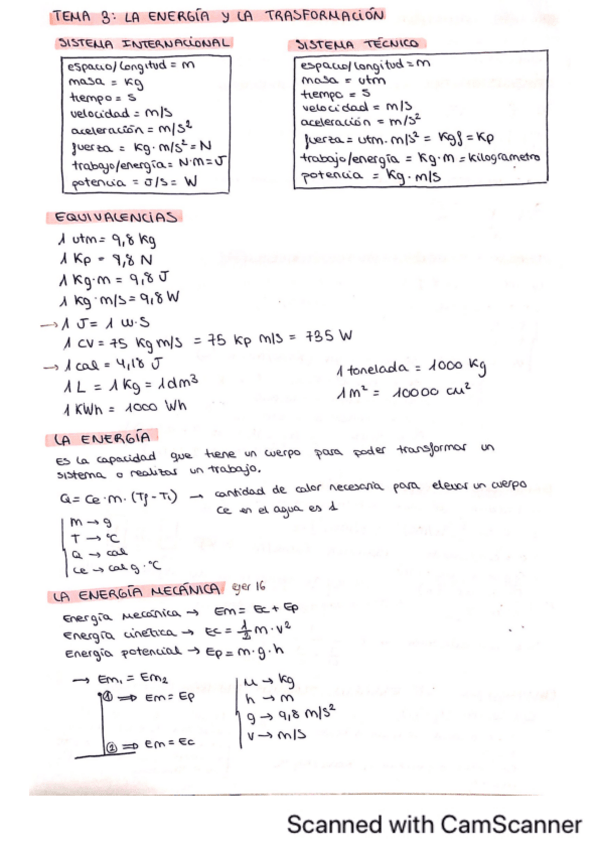 TEMA 3: LA ENERGÍA Y LA TRASFORMACIÓN
SISTEMA INTERNACIONAL
espacio/longitud = m
masa = kg
tiempo = s
velocidad = m/s
aceleración = m/s²
fuerza = kg·m/s² = N
trabajo/energía = N·m = J
potencia = J/s = W
SISTEMA TÉCNICO
espacio/longitud = m
masa = utm
tiempo = s
velocidad = m/s
aceleración = m/s²
fuerza = utm·m/s² = Kgf = Kp
trabajo/energía = Kg·m = kilogrametro
potencia = Kg·m/s
EQUIVALENCIAS
1 utm = 9,8 kg
1 Kp = 9,8 N
1 Kg·m = 9,8 J
1 kg·m/s = 9,8 W
→ 1 J = 1 w·s
1 CV = 75 Kg m/s = 75 Kp m/s = 735 W
→ 1 cal = 4,18 J
1 L = 1 Kg = 1 dm³
1 KWh = 1000 Wh
1 tonelada = 1000 Kg
1 m² = 10000 cm²
LA ENERGÍA
Es la capacidad que tiene un cuerpo para poder transformar un
sistema o realizar un trabajo.
Q = Ce·m·(Tf - Ti) → cantidad de calor necesaria para elevar un cuerpo
Ce en el agua es 1
m → g
T → °C
Q → cal
Ce → cal g·°C
LA ENERGÍA MECÁNICA ejer 16
Energía mecánica → Em = Ec + Ep
Energía cinética → Ec = 1/2 m·v²
Energía potencial → Ep = m·g·h
→ Em₁ = Em₂
① ⇒ Em = Ep
② ⇒ Em = Ec
M → kg
h → m
g → 9,8 m/s²
v → m/s
Scanned with CamScanner